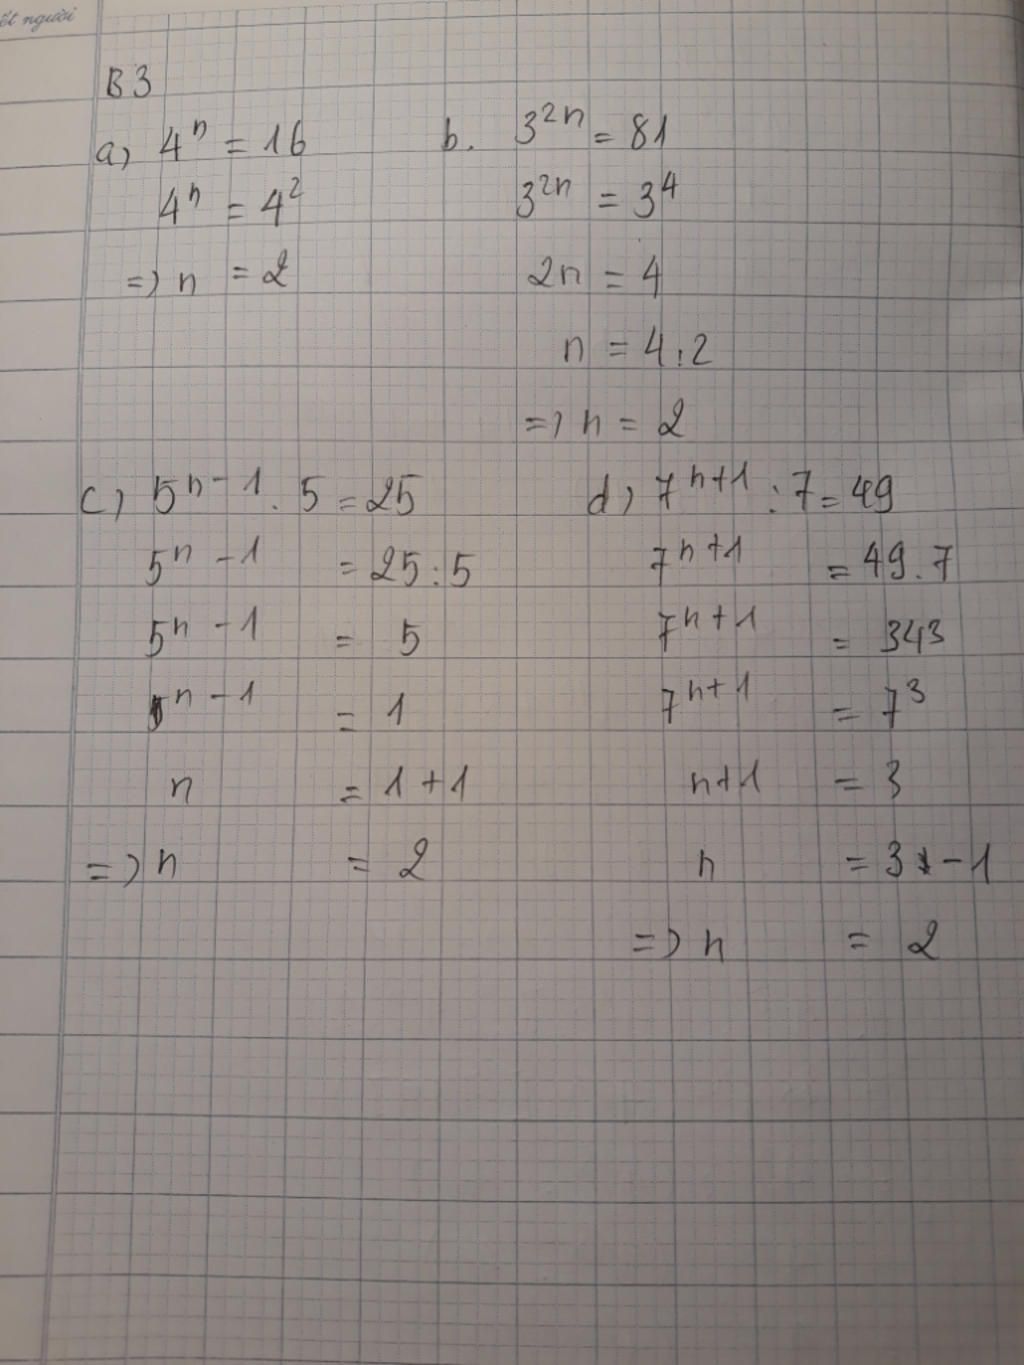 ết người
B3
a) 4ⁿ = 16
4ⁿ = 4²
=) n = 2
b. 3²ⁿ = 81
3²ⁿ = 3⁴
2n = 4
n = 4:2
=) n = 2
c) 5ⁿ⁻¹ . 5 = 25
5ⁿ⁻¹ = 25:5
5ⁿ⁻¹ = 5
ⁿ⁻¹ = 1
n = 1+1
=) n = 2
d) 7ⁿ⁺¹ : 7 = 49
7ⁿ⁺¹ = 49.7
7ⁿ⁺¹ = 343
7ⁿ⁺¹ = 7³
n+1 = 3
n = 3 - 1
=) n = 2